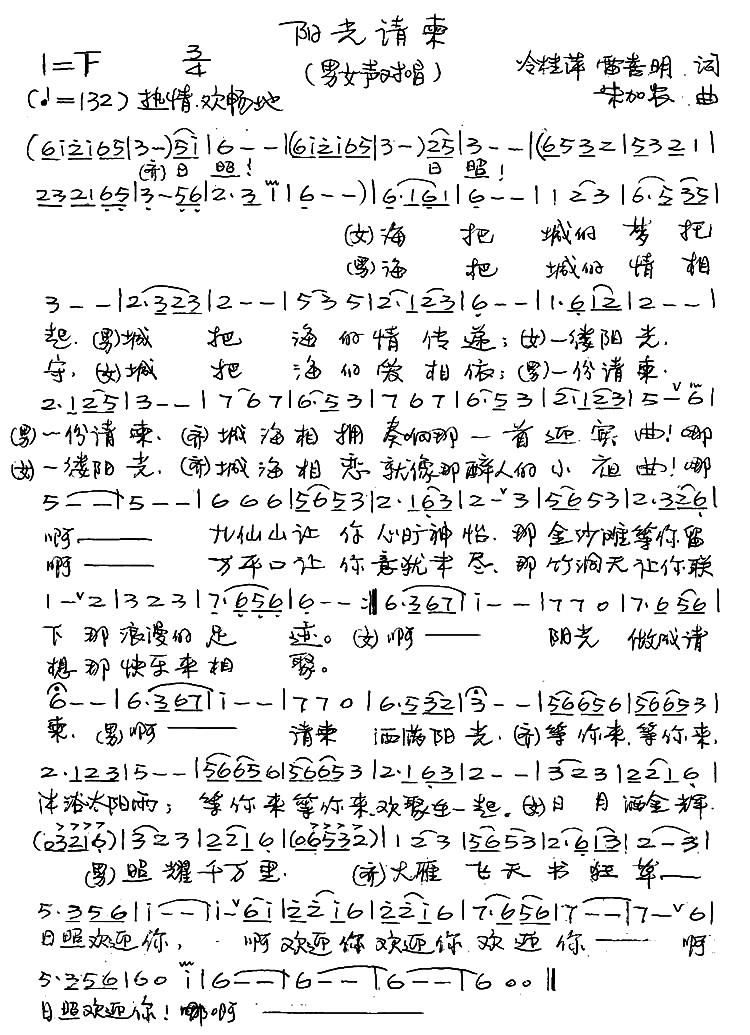 阳光请柬
1=F 3/4 (男女声对唱) 冷桂萍 雷善明 词
(♩=132) 热情.欢畅地 朱加农 曲
(6i2i65|3--)5i|6--|(6i2i65|3--)25|3--|(6532|5321|
(齐)日 照! 日 照!
232165|3-56|2·3 i|6--)|6·161|6--|1 2 3|6·535|
(女)海 把 城的 梦 托
(男)海 把 城的 情 相
3--|2·323|2--|5 3 5|2·123|6--|1·612|2--|
起.(男)城 把 海的情 传 递;(女)一缕阳光.
守,(女)城 把 海的爱 相 依;(男)一份请柬.
2·125|3--|7 6 7|6·53|7 6 7|6·53|2·123|5-6|
(男)一份请柬.(齐)城海相拥 奏响那一首迎宾曲!哪
(女)一缕阳光.(齐)城海相恋 就像那醉人的小夜曲!哪
5--|5--|6 6 6|5653|2·163|2-3|5653|2·326|
啊—— 九仙山让你心旷神怡.那金沙滩等你留
啊—— 万平口让你意犹未尽.那竹洞天让你联
1-2|3 2 3|7·656|6--:‖6·367|i--|7 7 0|7·656|
下 那浪漫的足 迹。(女)啊—— 阳光 做成请
想 那快乐来相 聚。
6--|6·367|i--|7 7 0|6·532|3--|56656|56653|
柬.(男)啊—— 请柬 洒满阳光.(齐)等你来.等你来,
2·123|5--|56656|56653|2·163|2--|3 2 3|2216|
沐浴太阳雨;等你来等你来.欢聚在一起.(女)日 月 洒金辉.
(03216)|3 2 3|2216|(06532)|1 2 3|5653|2·613|2-3|
(男)照 耀千万里. (齐)大雁 飞天 书 狂 草——
5·356|i--|i-6i|22i6|22i6|7·656|7--|7-6|
日照欢迎你, 啊欢迎你欢迎你 欢 迎 你—— 啊
5·356|60 i|6--|6--|6--|6 0 0‖
日照欢迎你!哪啊——